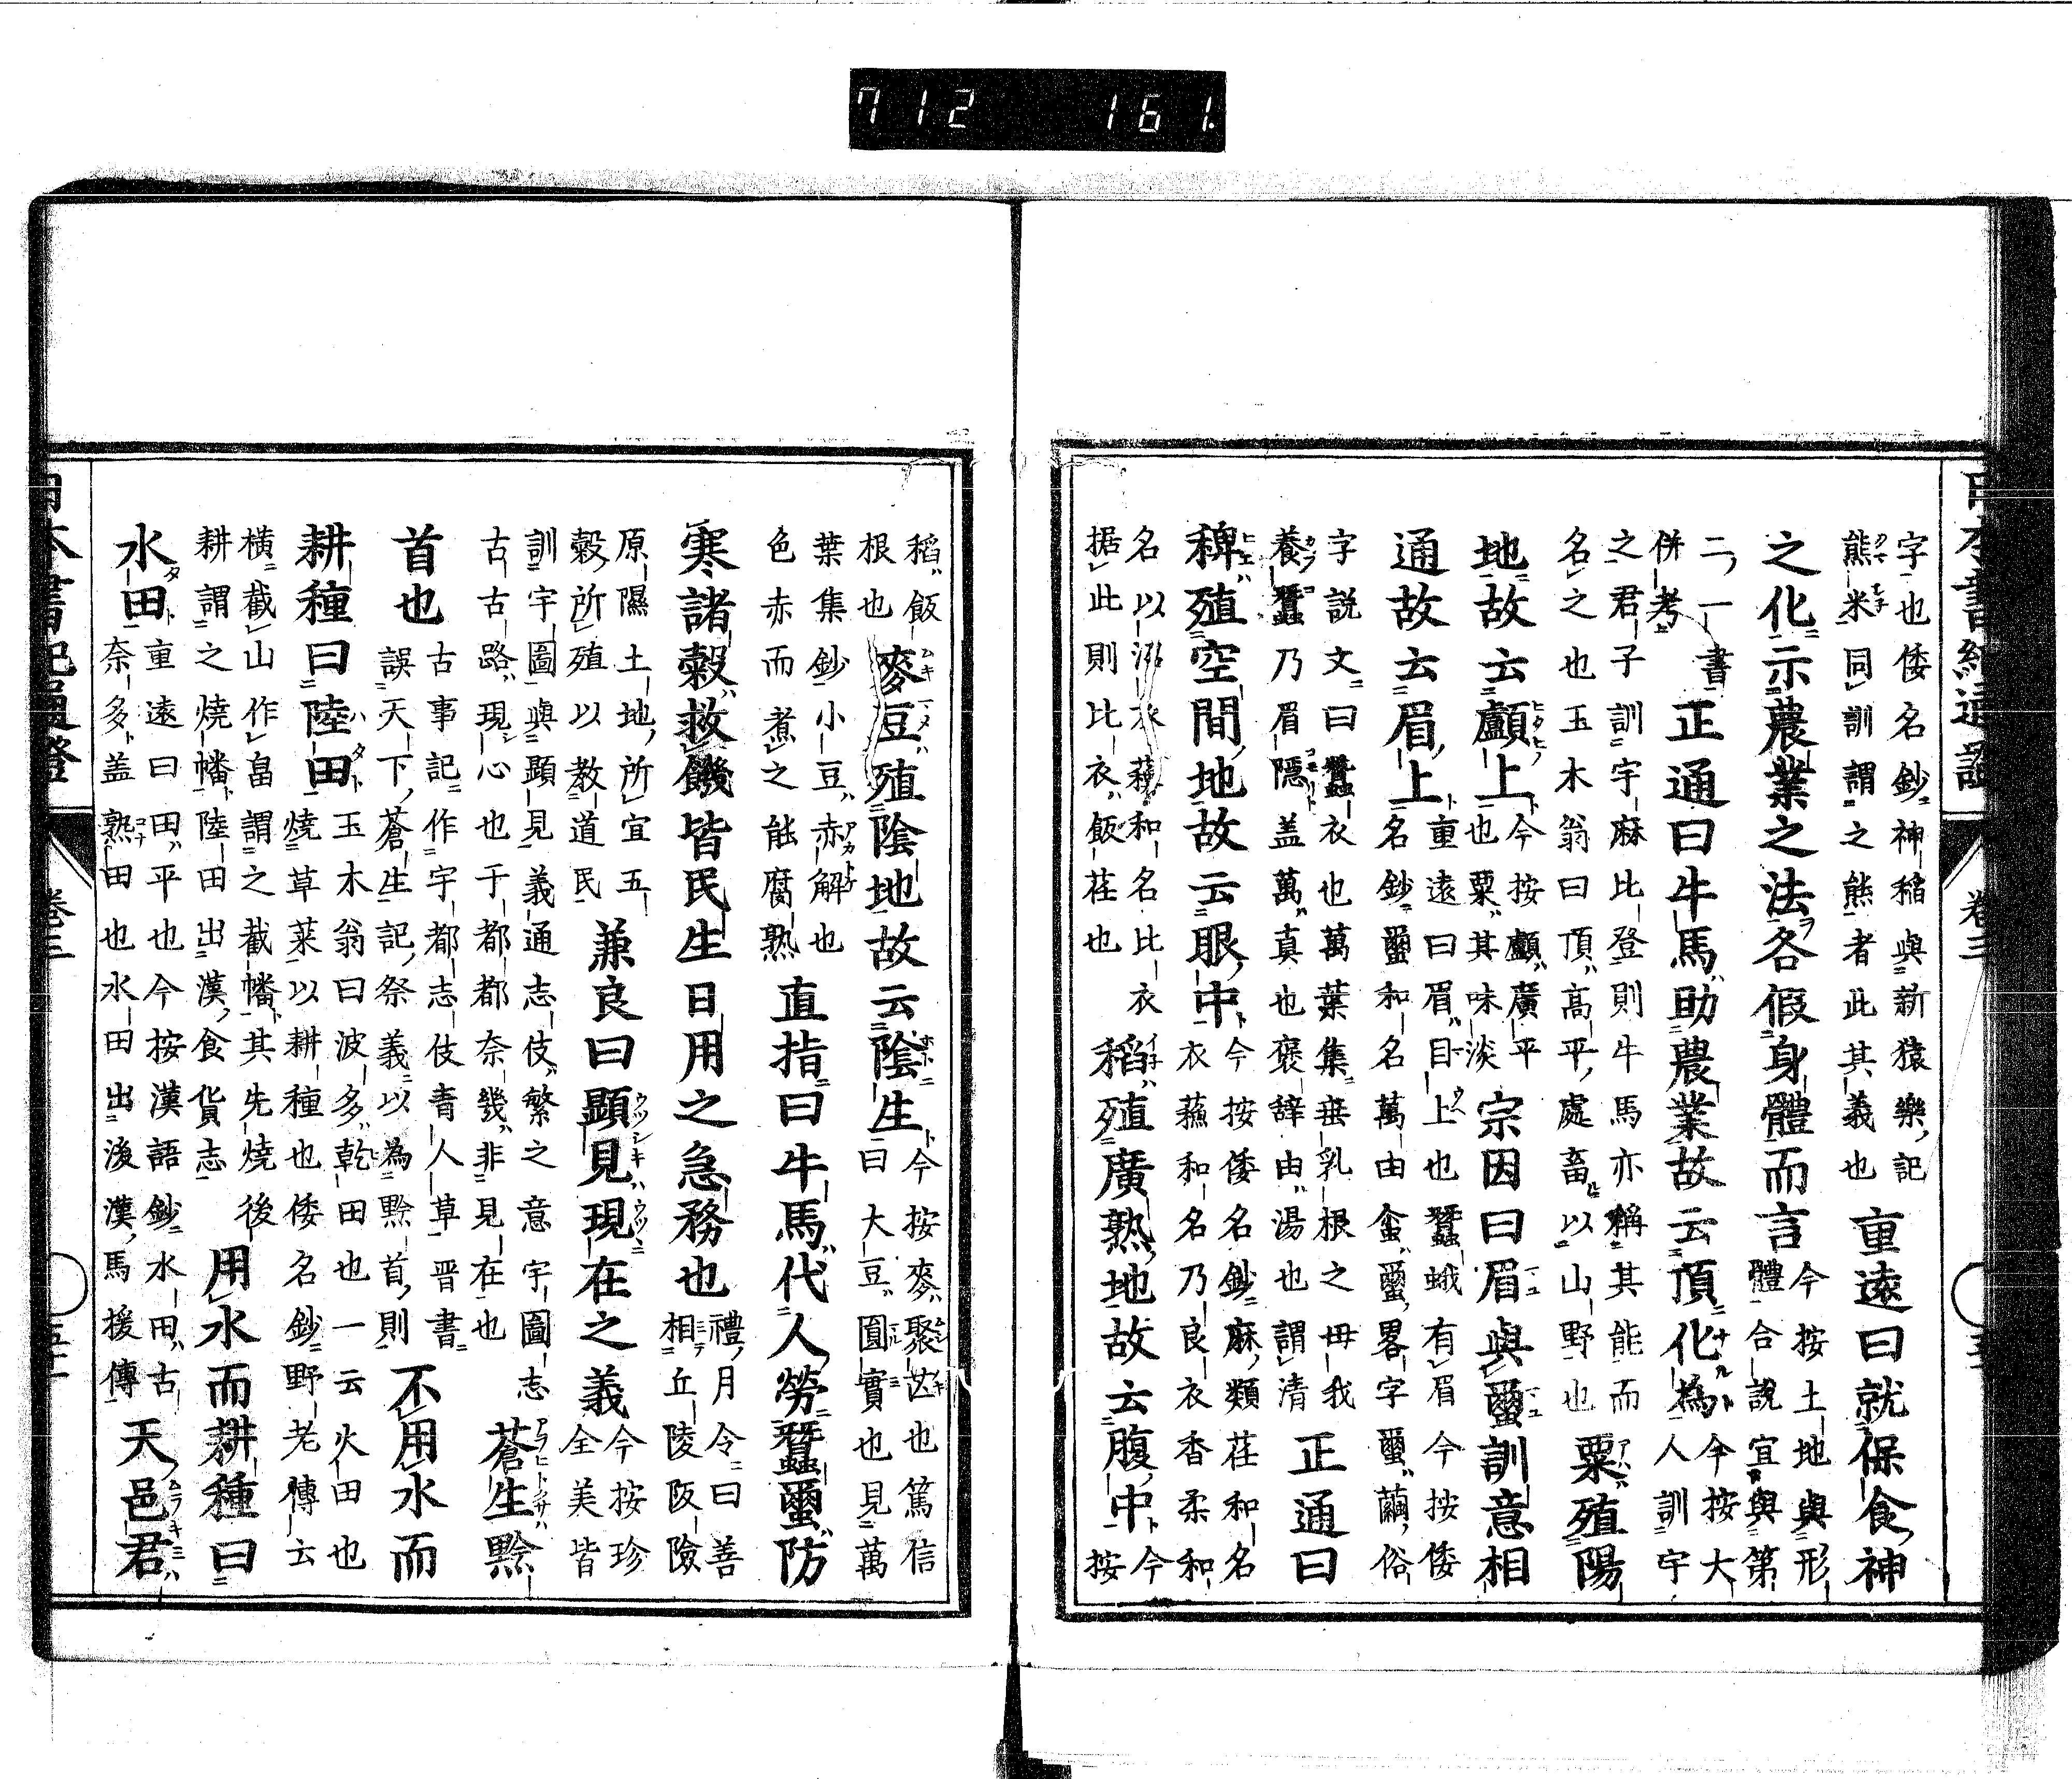 712 161.
字也倭名鈔神稻與新猿樂記
熊米同訓謂之熊者此其義也
重遠曰就保食神
之化示農業之法各假身體而言
今按土地與形
體合說宜與第
二一書
併考
正通曰牛馬助農業故云頂化為
今按大
人訓宇
之君子訓宇麻比登則牛馬亦稱其能而
名之也玉木翁曰頂高平處畜以山野也
粟殖陽
地故云顱上
今按顱廣平
也粟其味淡
宗因曰眉與蠒訓意相
通故云眉上
重遠曰眉目上也蠶蛾有眉今按倭
名鈔蠒和名萬由𧉫蠒畧字蠒繭俗
字說文曰蠶衣也萬葉集垂乳根之毋我
養蠶乃眉隱盖萬真也褒辞由湯也謂清
正通曰
稗殖空間地故云眼中
今按倭名鈔麻類荏和名
衣蘓和名乃良衣香柔和
名以沼衣蘓和名比衣
据此則比衣飯荏也
稻殖廣熟地故云腹中
今
按
稻飯
根也
麥豆殖陰地故云陰生
今按麥聚芒也篤信
曰大豆圓實也見萬
葉集鈔小豆赤解也
色赤而煮之能腐熟
直指曰牛馬代人勞蠶蠒防
寒諸穀救饑皆民生日用之急務也
禮月令曰善
相丘陵阪險
原隰土地所宜五
穀所殖以教道民
兼良曰顯見現在之義
今按珍
全美皆
訓宇圖與顯見義通志伎繁之意宇圖志
古古路現心也于都都奈幾非見在也
蒼生黔
首也
古事記作宇都志伎青人草晋書
誤天下蒼生記祭義以為黔首則
不用水而
耕種曰陸田
玉木翁曰波多乾田也一云火田也
燒草萊以耕種也倭名鈔野老傳云
橫截山作畠謂之截幡其先燒後
耕謂之燒幡陸田出漢食貨志
用水而耕種曰
水田
重遠曰田平也今按漢語鈔水田古
奈多盖熟田也水田出後漢馬援傳
天邑君